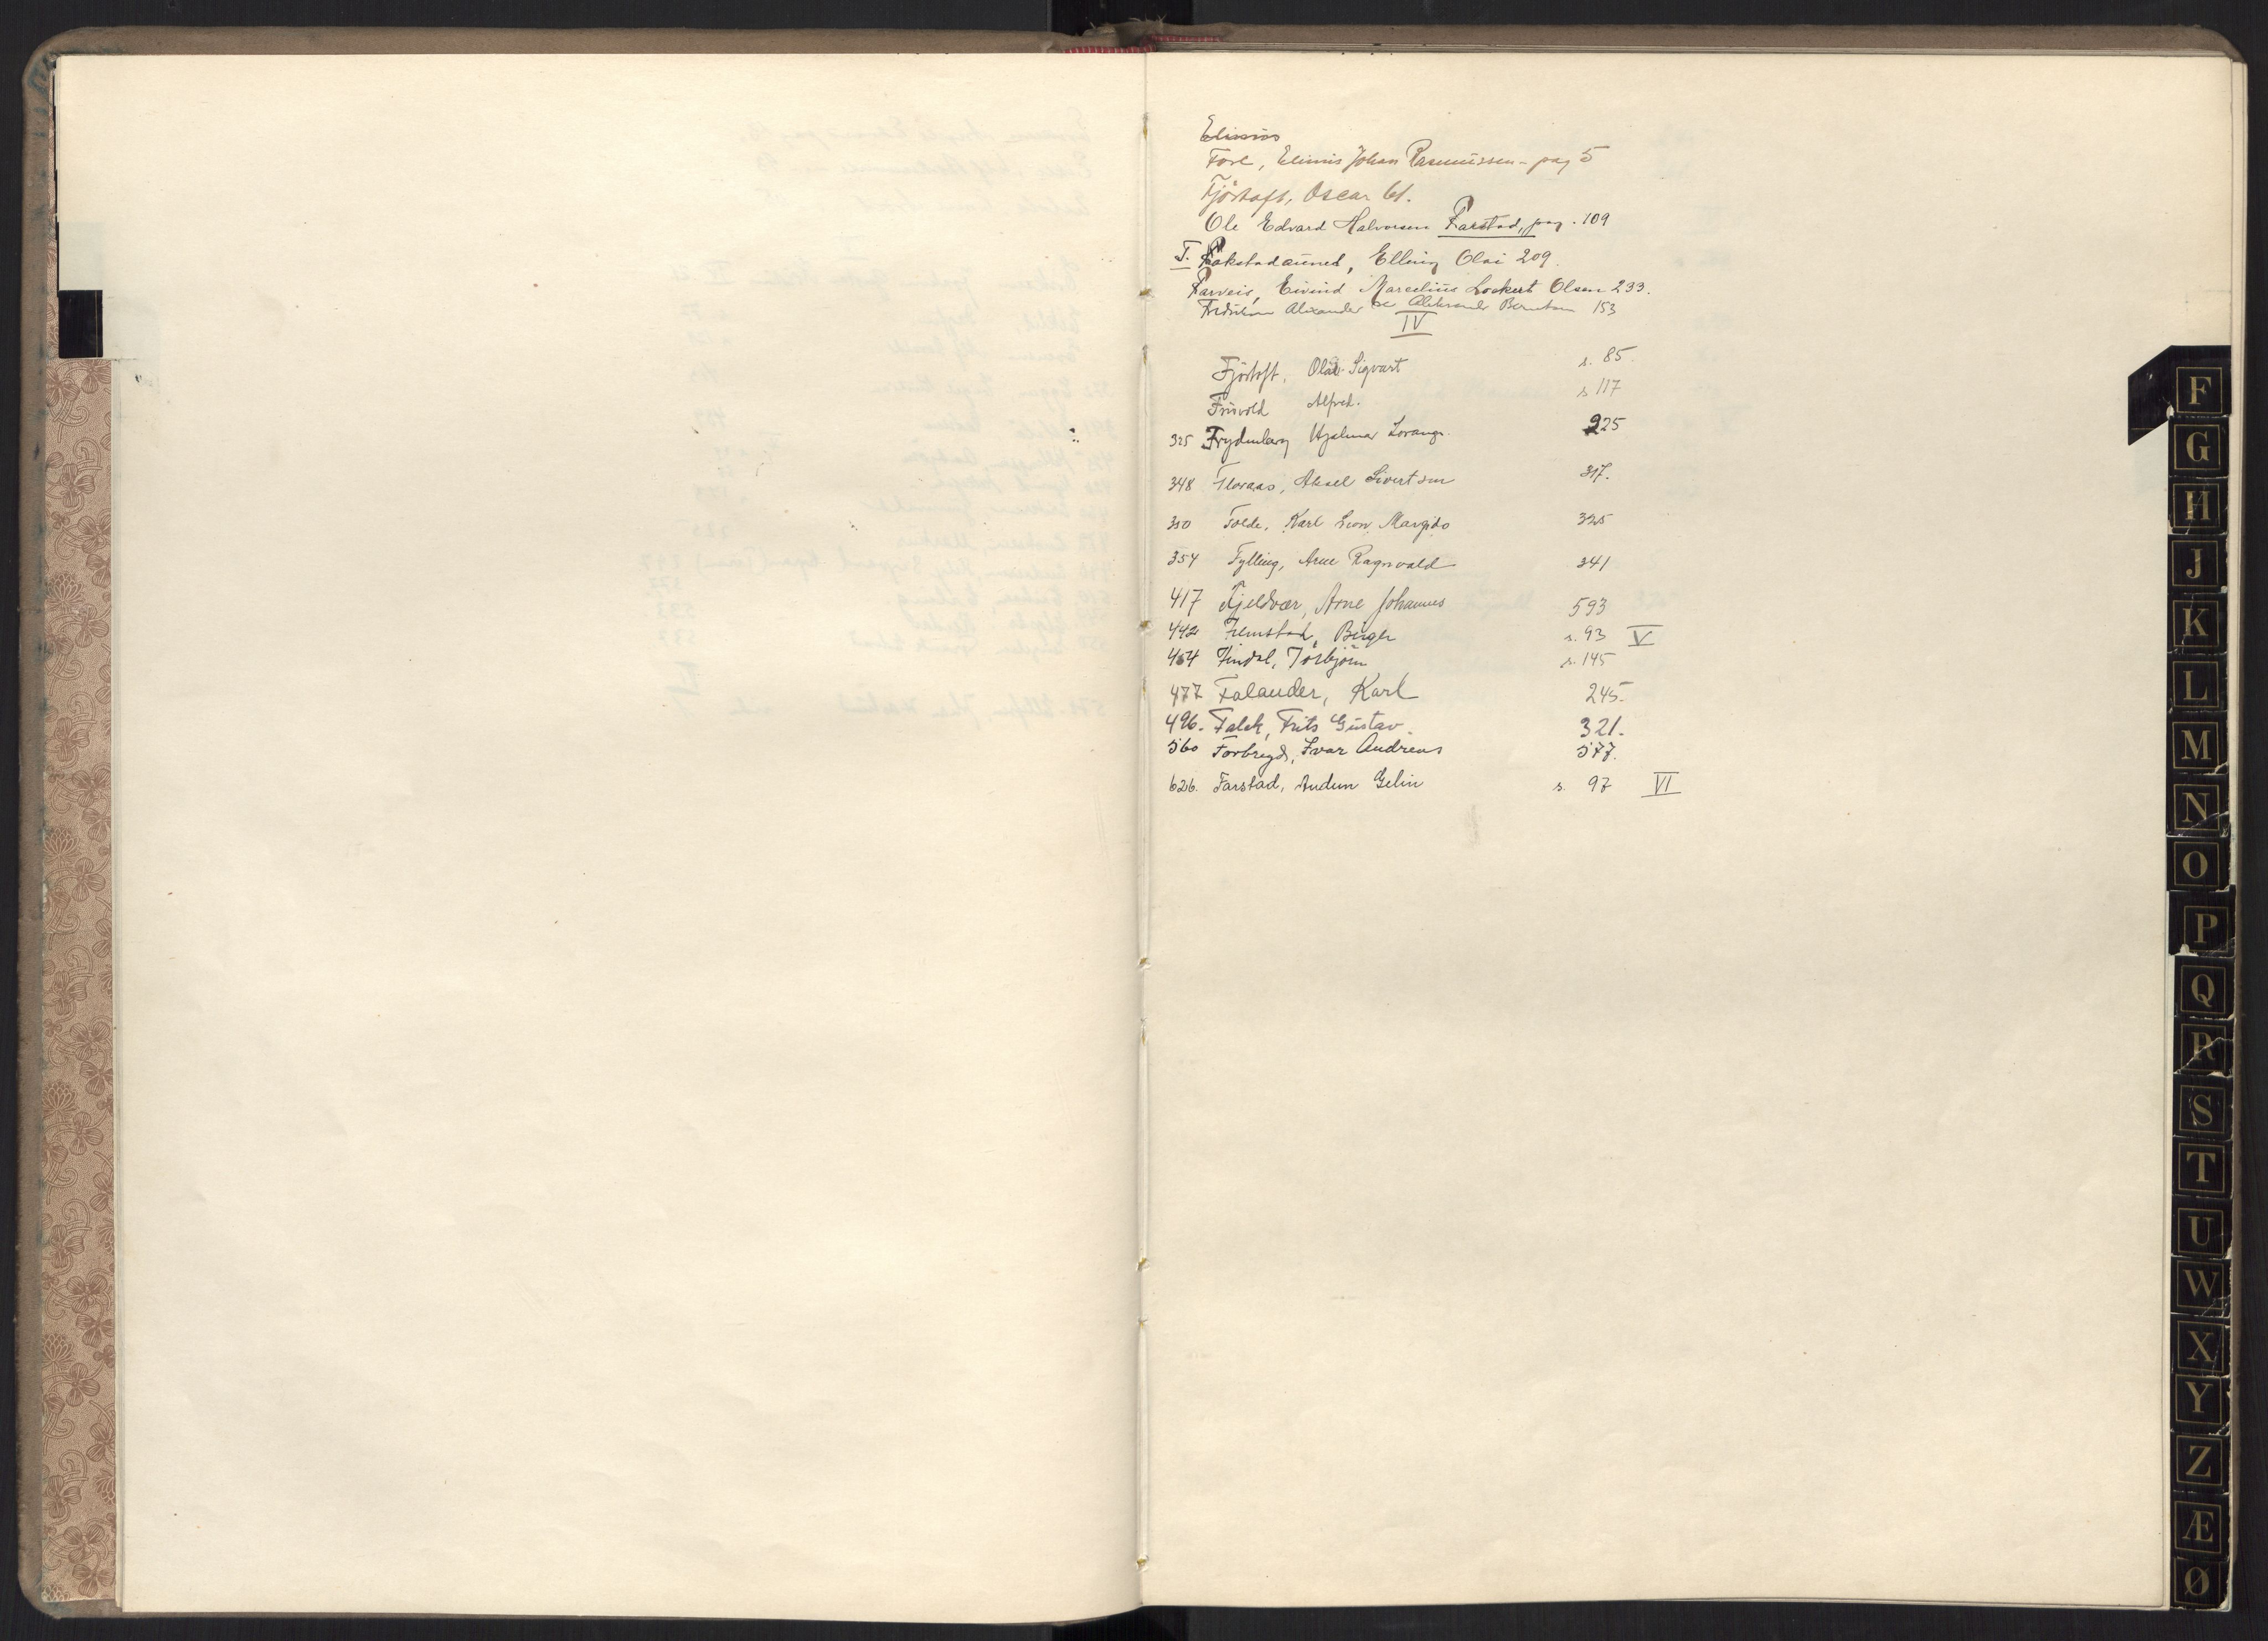 Elinius
Fore, Elinius Johan Rasmussen - pag 5
Fjörtoft, Oscar 61.
Ole Edvard Halvorsen Farstad, pag. 109
I. Fakstadauned, Elling Olai 209.
Farveis, Eivind Marcelius Lockert Olsen 233.
Alexander se Aleksander Berntsen 153
IV
Fjörtoft, Olav Sigvart s. 85.
Frisvold Alfred. s 117
325 Frydenberg Hjalmar Lorang. 225
348 Floraas, Aksel Sivertsen 317.
350 Folde, Karl Leon Margido 325
354 Fylling, Arne Ragnvald 341
417 Fjeldvær, Arne Johannes 593
442 Fremstad, Birger s. 93 V
454 Findal, Torbjörn s. 145
477 Falander, Karl 245.
496. Falck, Frits Gustav. 321.
560 Forbregd, Ivar Andreas 577.
626. Farstad, Audun Gelin s. 97 VI
F
G
H
J
K
L
M
N
O
P
Q
R
S
T
U
W
X
Y
Z
Æ
Ø